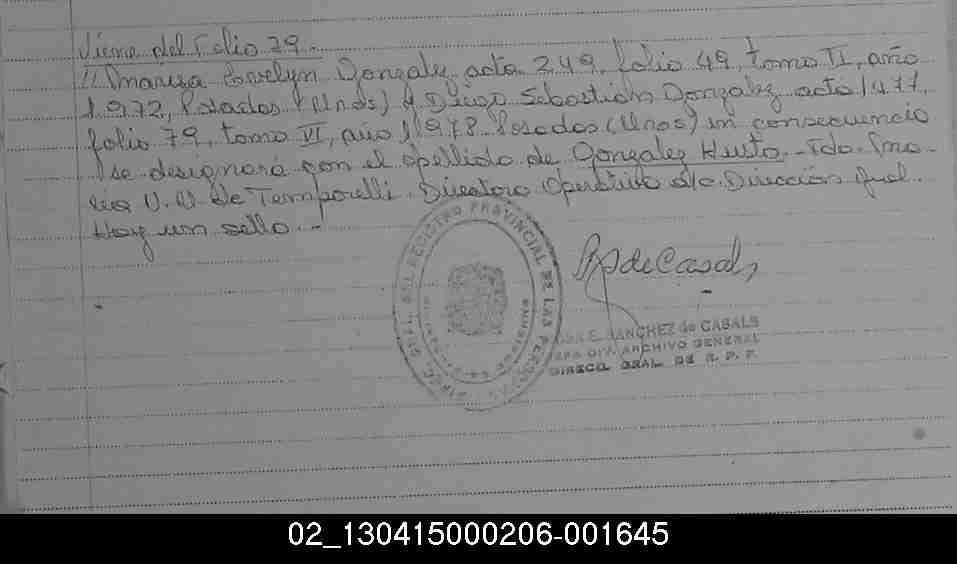 Viene del Folio 79.-
// Marisa Evelyn Gonzalez acta 249, folio 49, tomo II, año
1.972, Posadas (Mnes) y Diego Sebastian Gonzalez acta 1477,
folio 79, tomo VI, año 1.978 Posadas (Mnes) en consecuencia
se designará con el apellido de Gonzalez Kusto.- Fdo. Ma-
V. V. de Temporelli. Directora Operativo a/c. Dirección Gral.
Hay un sello.-
DIREC. GRAL. DEL REGISTRO PROVINCIAL DE LAS PERSONAS
deCasals
E. SANCHEZ de CASALS
JEFA DIV. ARCHIVO GENERAL
DIRECC. GRAL. DE R. P. P.
02_130415000206-001645